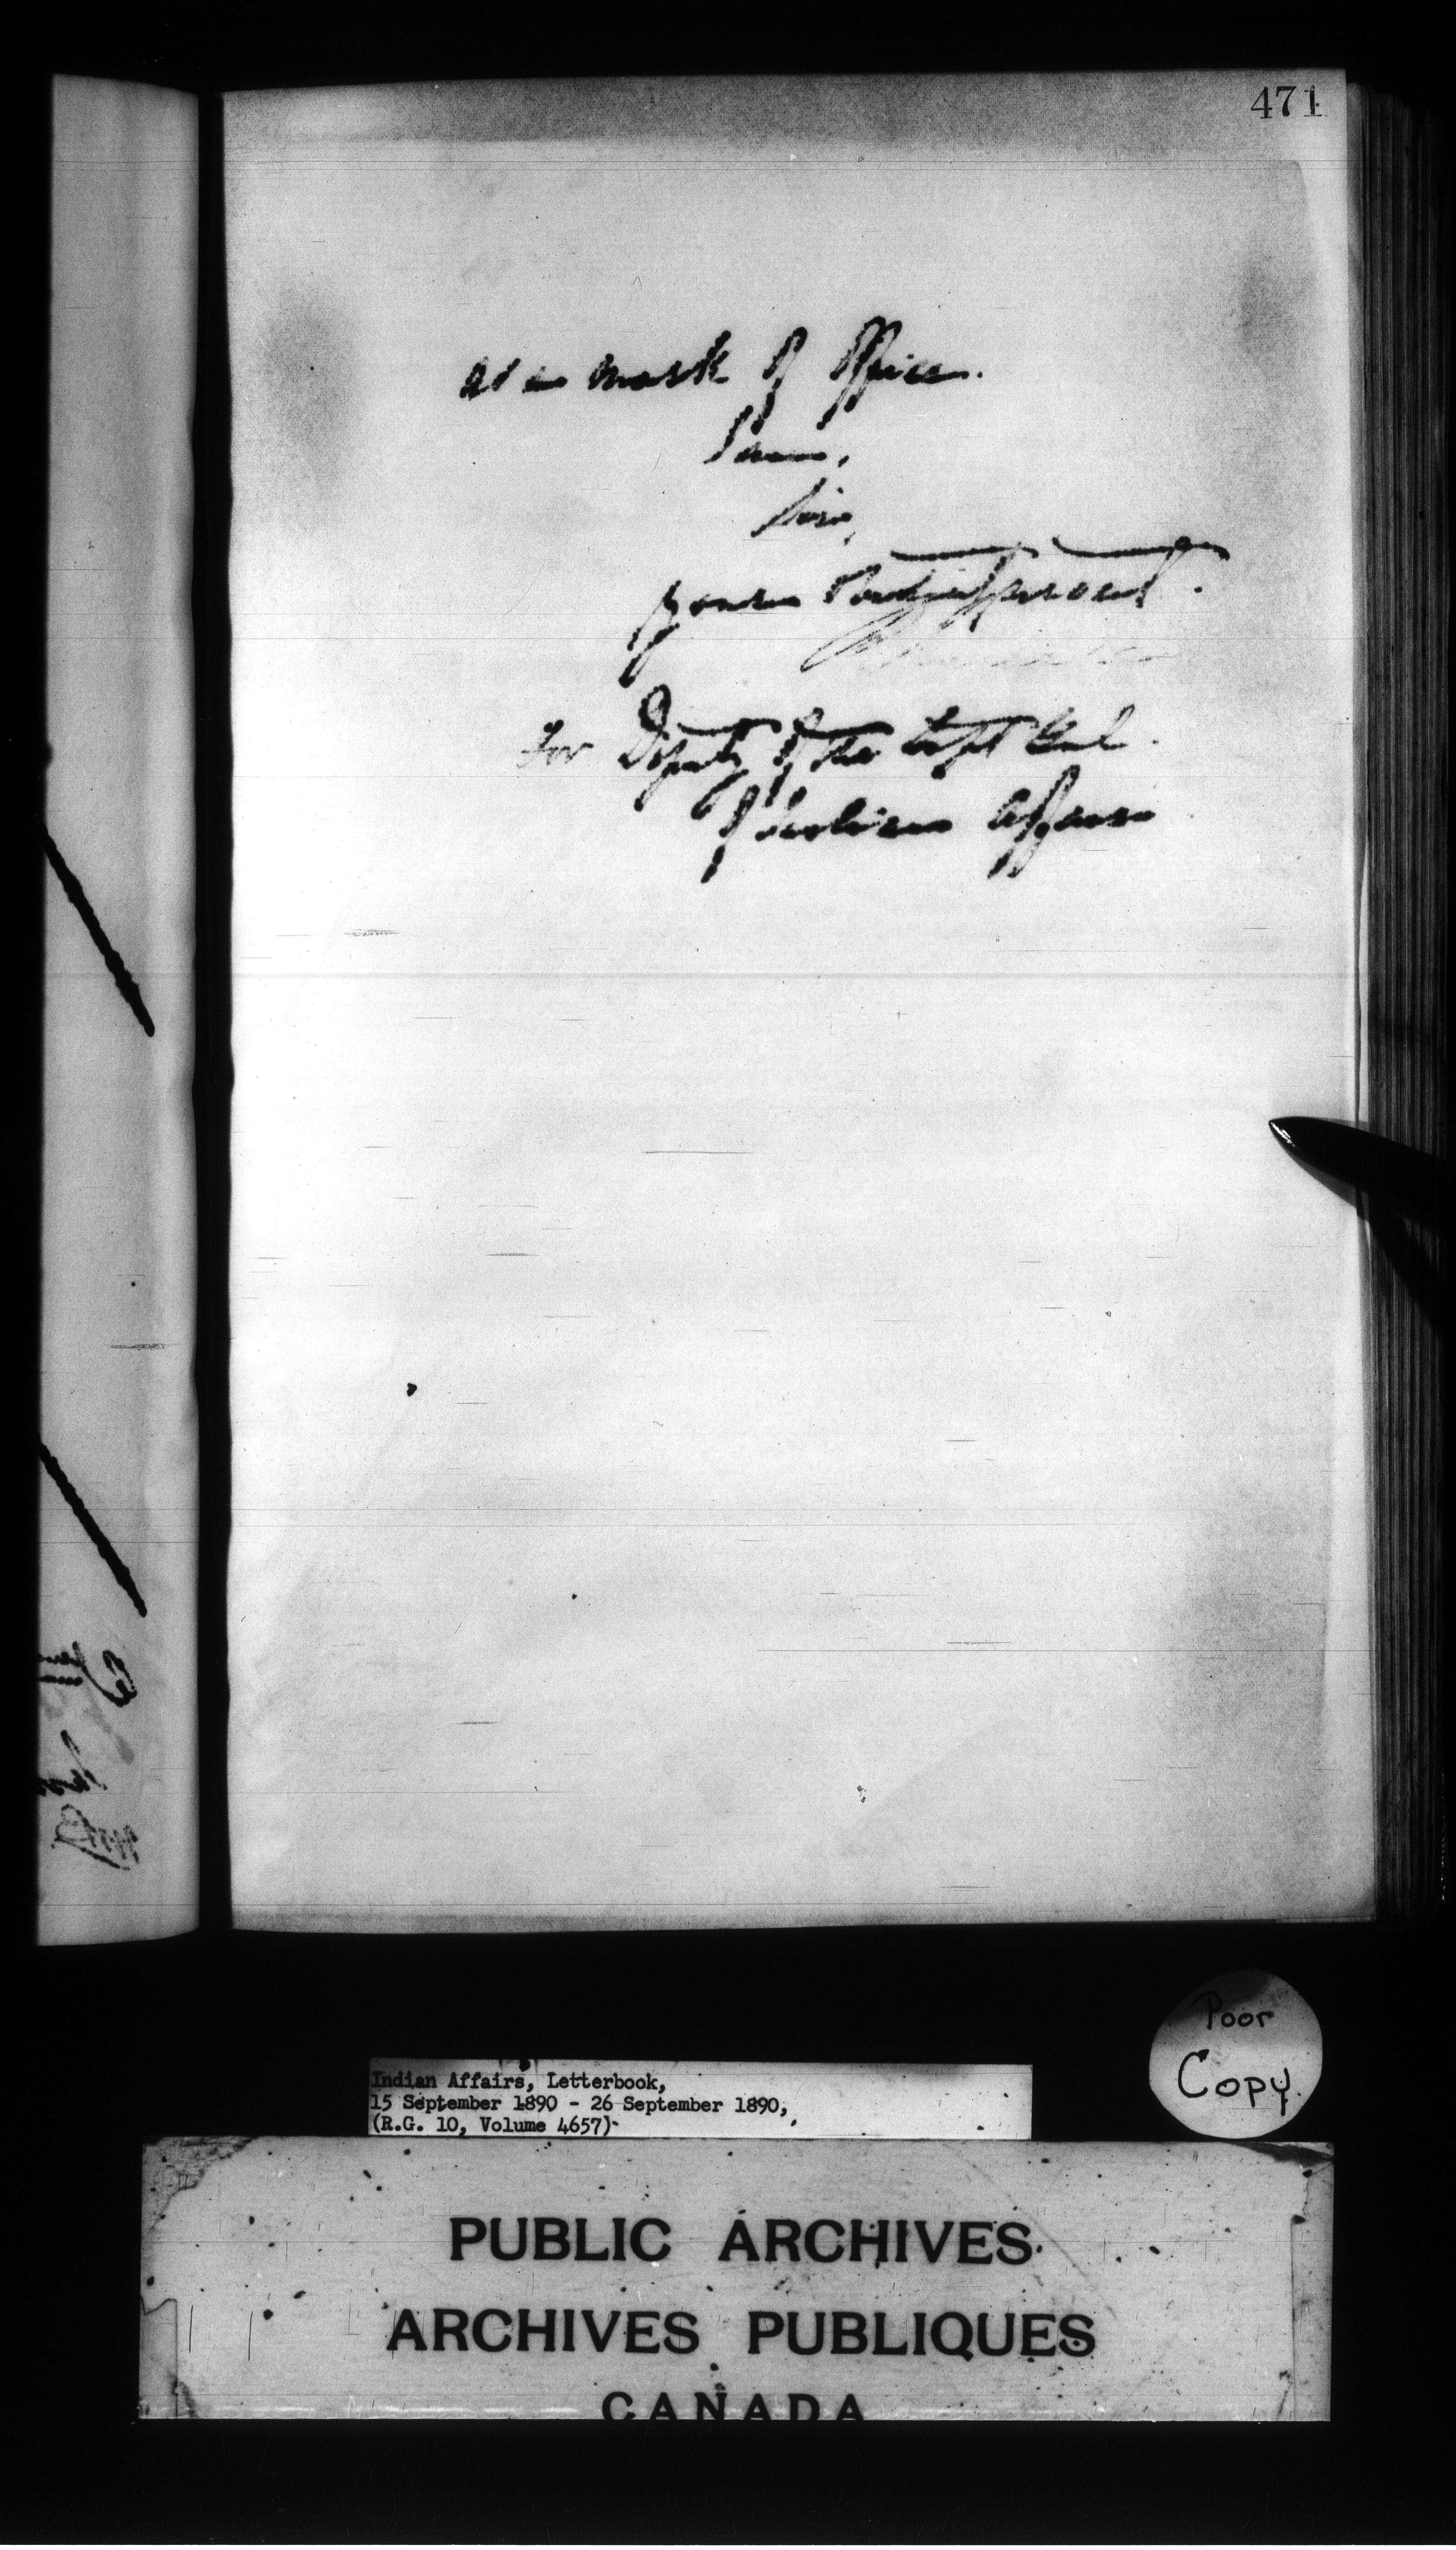 471
as a mark of office.
I am,
Sir,
Your obedient servant.
For Deputy of the Supt Genl.
of Indian Affairs
Poor
Copy.
Indian Affairs, Letterbook,
15 September 1890 - 26 September 1890,
(R.G. 10, Volume 4657)
PUBLIC ARCHIVES
ARCHIVES PUBLIQUES
CANADA